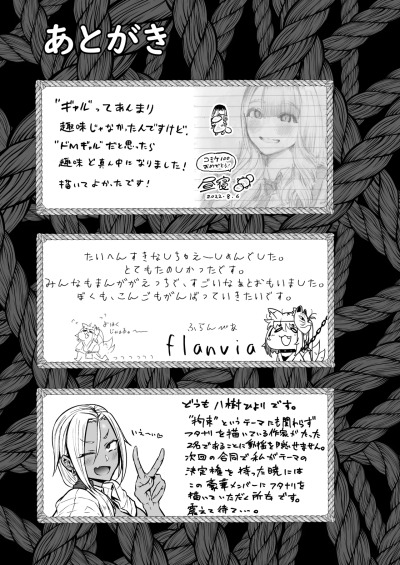 あとがき
"ギャル"ってあんまり
趣味じゃなかったんですけど、
"ドMギャル"だと思ったら
趣味ど真ん中になりました!
描いてよかったです!
コミケ100
おめでとう!
2022.8.6
たいへんすきなしちゅえーしょんでした。
とてもたのしかったです。
みんなもまんががえっちで、すごいなぁとおもいました。
ぼくも、こんごもがんばっていきたいです。
ふらんびあ
flanvia
いえーい♡
どうも 八樹ひよりです。
"拘束"というテーマにも関わらず
フタナリを描いている作家がたった
2名であることに動揺を隠せません。
次回の合同で私がテーマの
決定権を持った暁には
この豪華メンバーにフタナリを
描いていただく所存です。
震えて待て…。